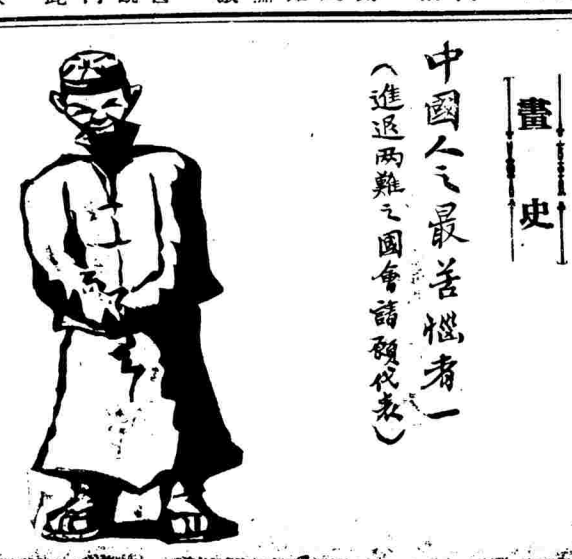 畫史
中國人之最苦惱者一
（進退两難之國會請願代表）